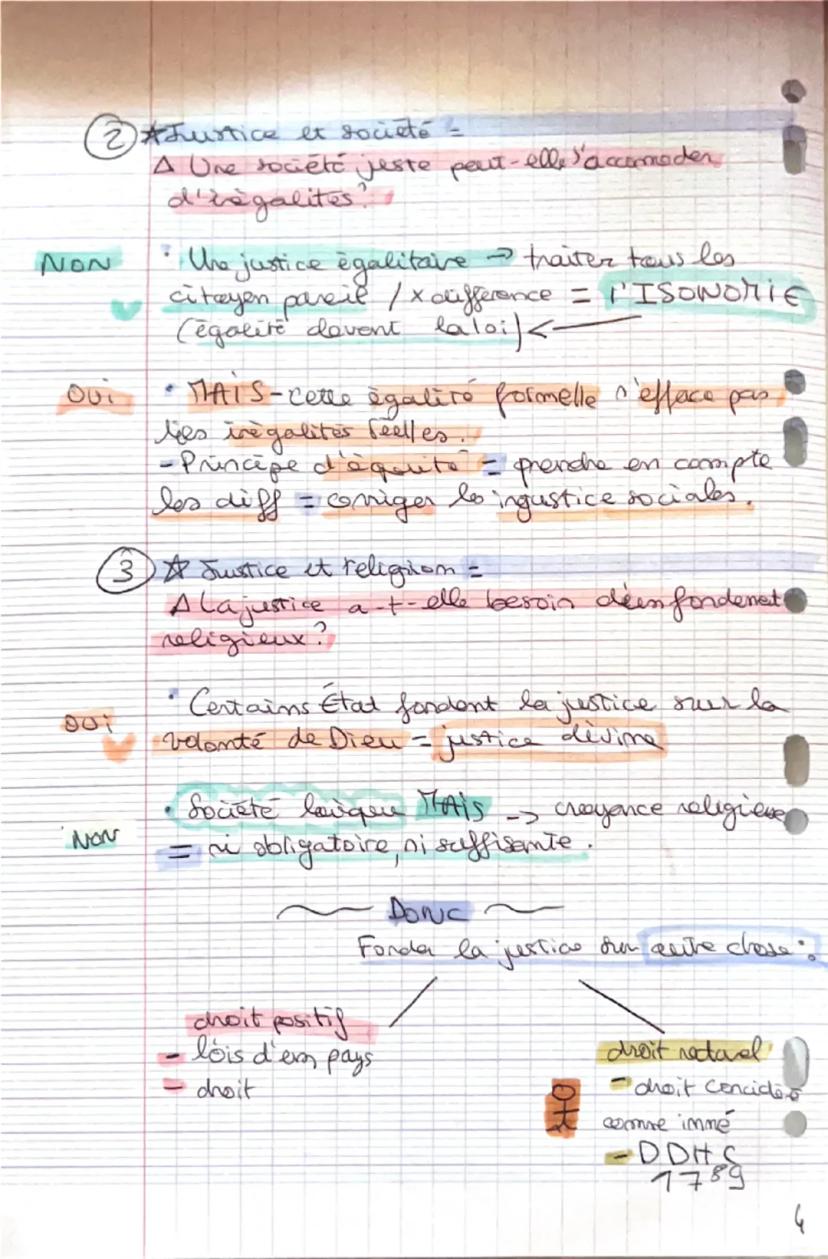 ② ☆ Justice et société =
Δ Une société juste peut-elle s'accomoder
d'inégalités ?
NON • Une justice égalitaire → traiter tous les
citoyen pareil / x différence = l'ISONOMIE
(égalité devant la loi) ←
OUI • MAIS - cette égalité formelle n'efface pas
les inégalités réelles.
- Principe d'équité = prendre en compte
les diff = corriger les injustice sociales.
③ ☆ Justice et religion =
Δ La justice a-t-elle besoin d'un fondement
religieux ?
• Certains État fondent la justice sur la
OUI volonté de Dieu = justice divine
• Société laïque MAIS -> croyance religieuse
NON = ni obligatoire, ni suffisante.
DONC
Fonder la justice sur autre chose :
droit positif
- lois d'un pays
- droit
droit naturel
- droit concidéré
comme inné
- DDHC
1789
4